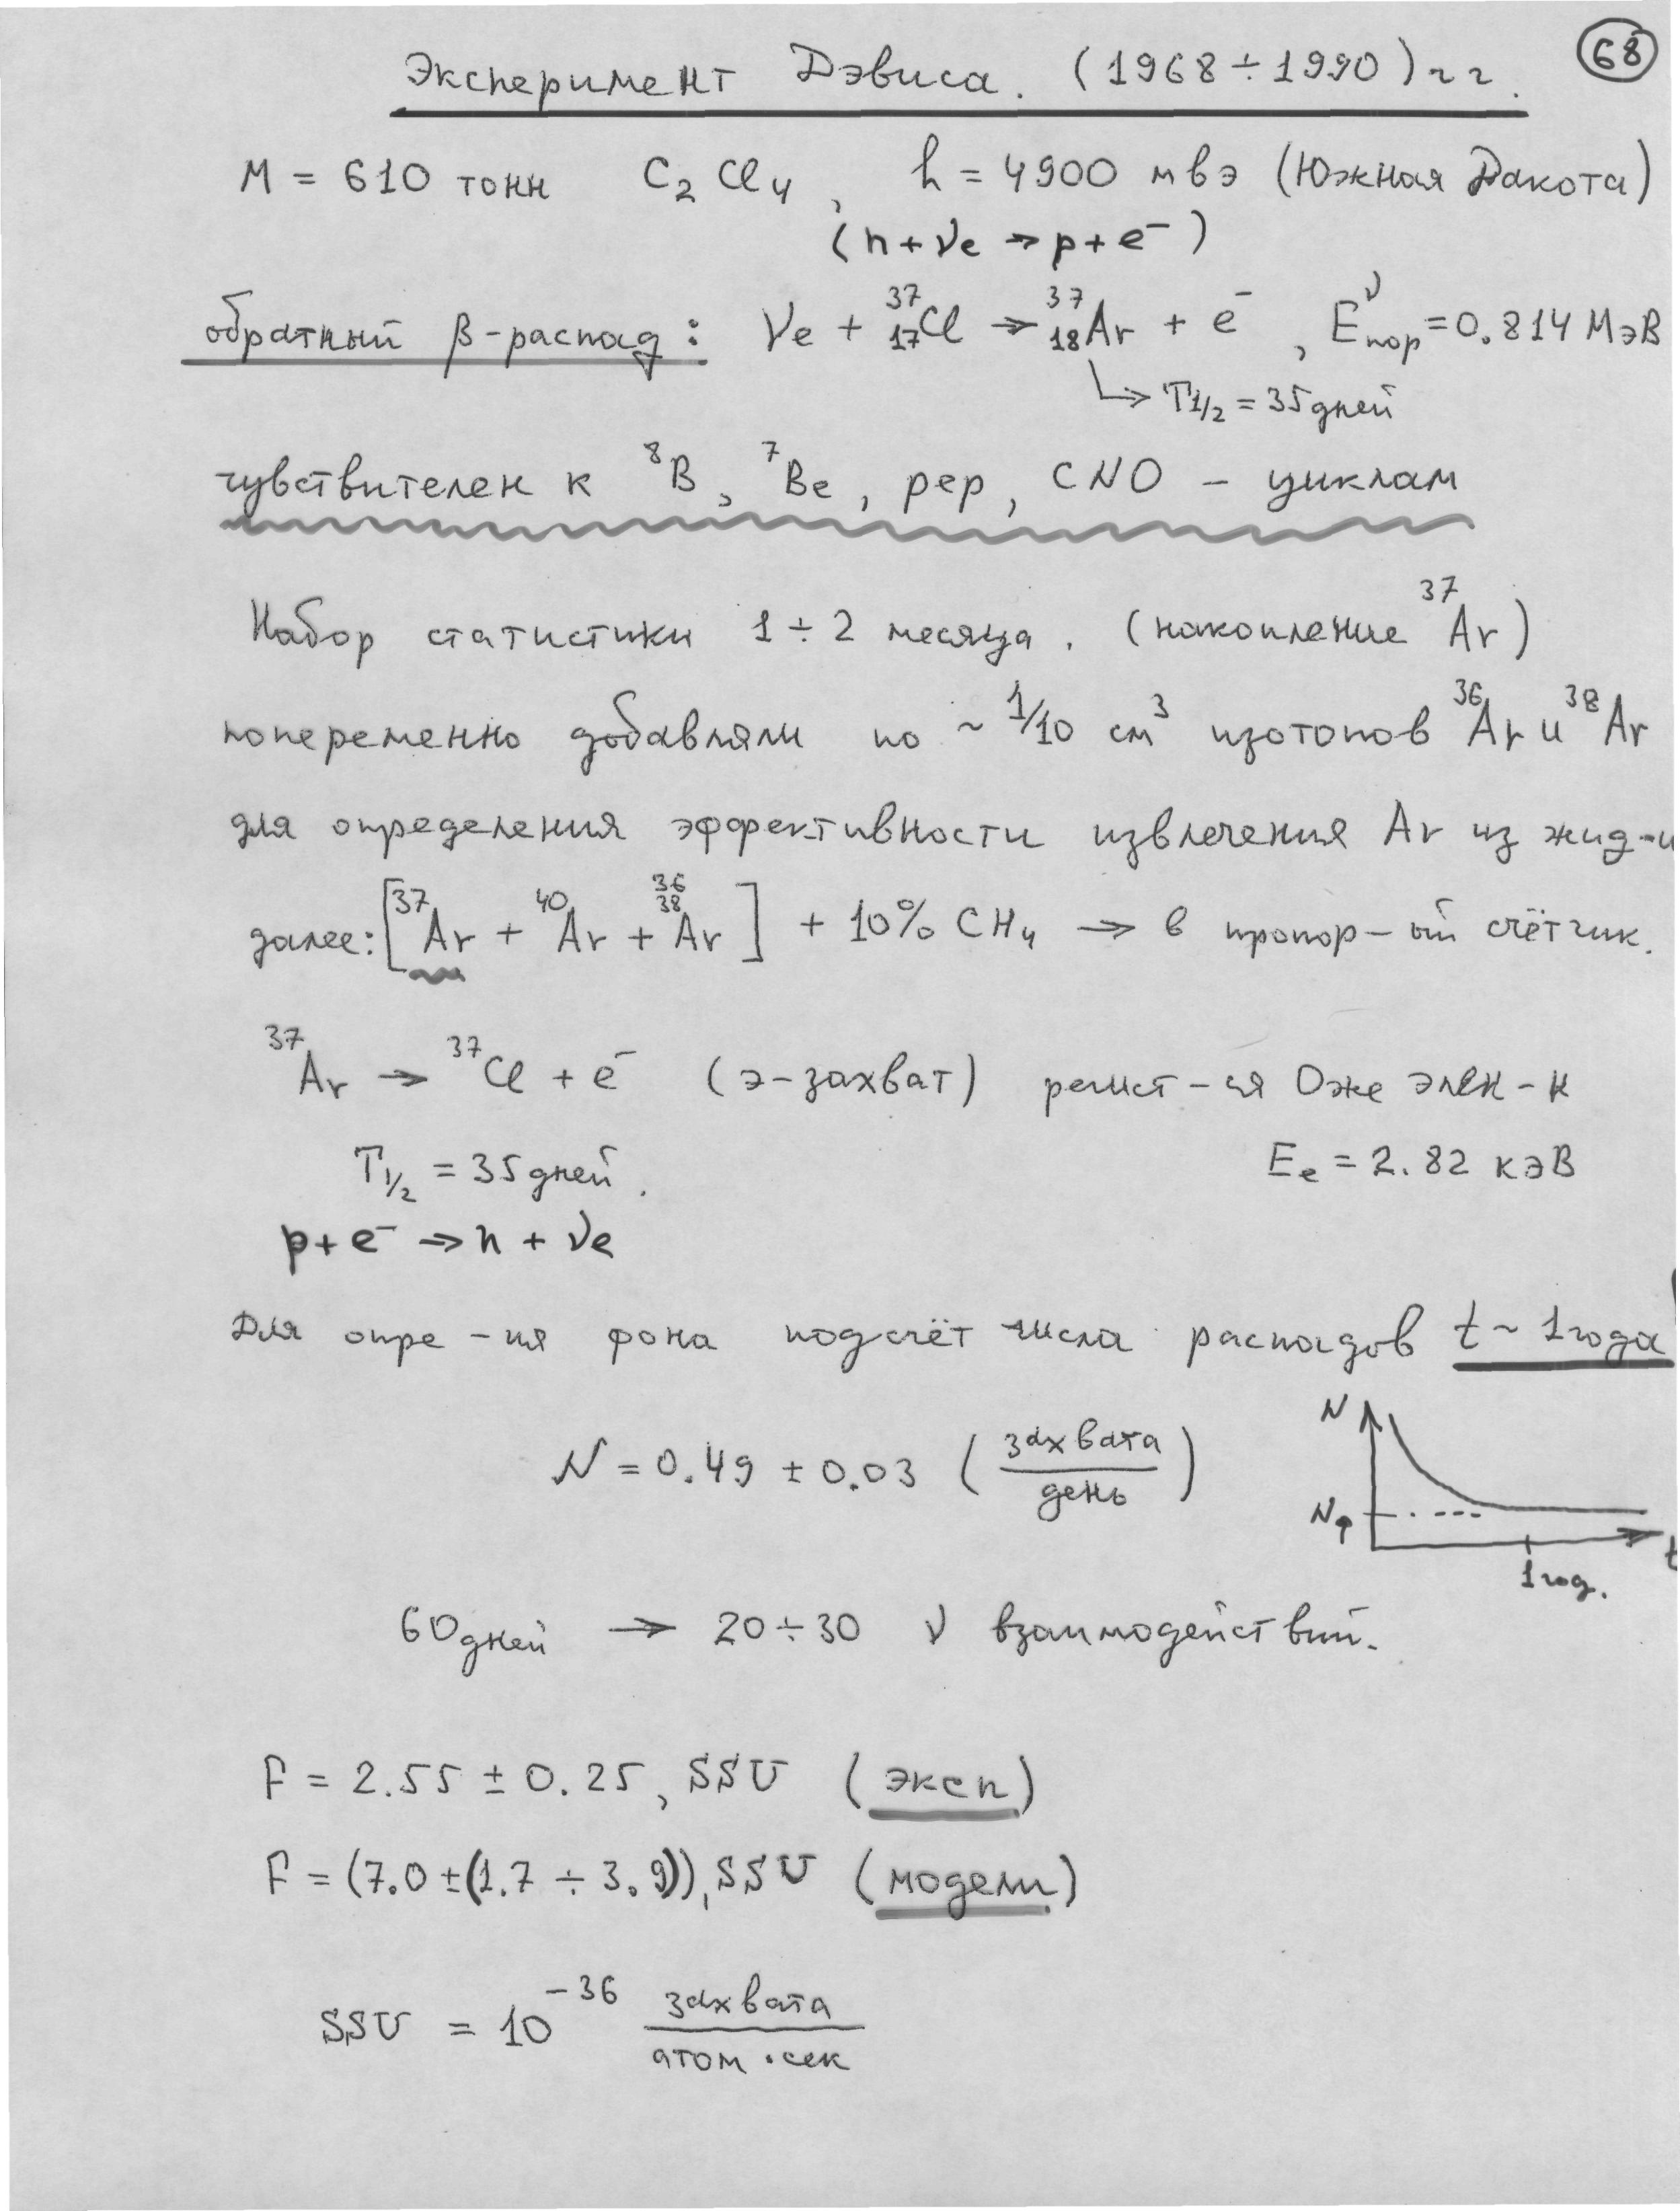 68
Эксперимент Дэвиса. (1968÷1990) г г.
M = 610 тонн C₂Cl₄, h = 4900 мвэ (Южная Дакота)
(n + νe → p + e⁻)
обратный β-распад: νe + ³⁷₁₇Cl → ³⁷₁₈Ar + e⁻, E^ν_пор = 0.814 МэВ
↳ T1/2 = 35 дней
чувствителен к ⁸B, ⁷Be, pep, CNO – циклам
Набор статистики 1÷2 месяца. (накопление ³⁷Ar)
попеременно добавляли по ~ 1/10 см³ изотопов ³⁶Ar и ³⁸Ar
для определения эффективности извлечения Ar из жид-и
далее: [³⁷Ar + ⁴⁰Ar + ³⁶ ³⁸Ar] + 10% CH₄ → в пропор-ый счётчик.
³⁷Ar → ³⁷Cl + e⁻ (э-захват) регист-ся Оже элек-н
T1/2 = 35 дней. Ee = 2.82 кэВ
p + e⁻ → n + νe
Для опре-ия фона подсчёт числа распадов t ~ 1 года
N = 0.49 ± 0.03 (захвата/день)
N
Nф
t
1 год.
60 дней → 20÷30 ν взаимодействий.
F = 2.55 ± 0.25, SSU (эксп)
F = (7.0 ± (1.7 ÷ 3.9)), SSU (модели)
SSU = 10⁻³⁶ захвата/атом·сек